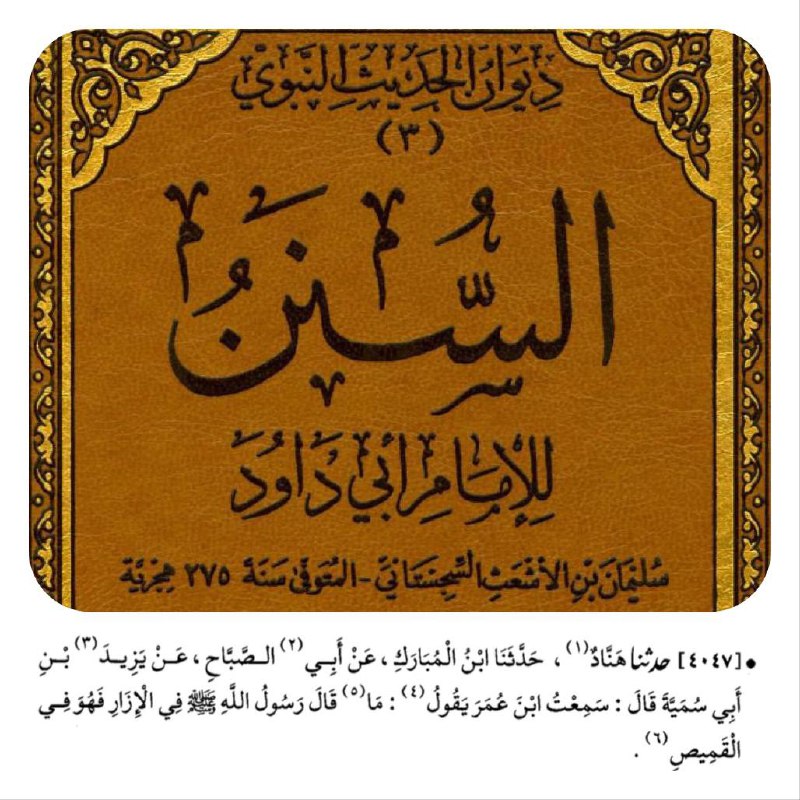 ديوان الحديث النبوي
(٣)
السُّنَنُ
للإمَامِ أبي دَاوُد
سُليمَان بن الأشعَث السِّجِستَاني - المُتوفى سَنَة ٢٧٥ هِجريَّة
• [٤٠٤٧] حدثنا هَنَّادٌ(١)، حَدَّثَنَا ابْنُ الْمُبَارَكِ، عَنْ أَبِي(٢) الصَّبَّاحِ، عَنْ يَزِيدَ(٣) بْنِ
أَبِي سُمَيَّةَ قَالَ: سَمِعْتُ ابْنَ عُمَرَ يَقُولُ(٤): مَا(٥) قَالَ رَسُولُ اللَّهِ ﷺ فِي الْإِزَارِ فَهُوَ فِي
الْقَمِيصِ(٦).